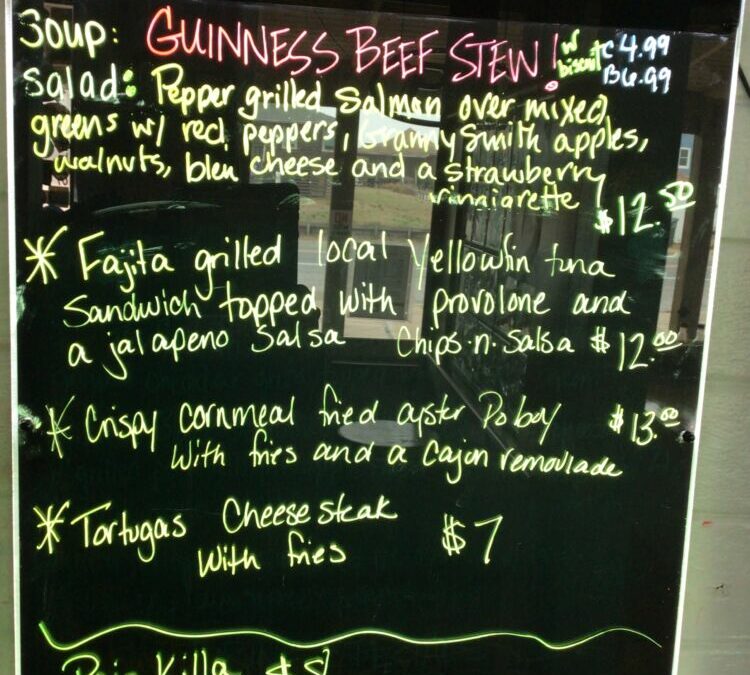 Soup: GUINNESS BEEF STEW! w/ biscuit C 4.99 B 6.99
Salad: Pepper grilled Salmon over mixed
greens w/ red peppers, Granny Smith apples,
walnuts, bleu cheese and a strawberry
vinniarette $12.50
* Fajita grilled local Yellowfin tuna
Sandwich topped with provolone and
a jalapeno Salsa Chips-n-Salsa $12.00
* Crispy cornmeal fried oyster Po boy $13.00
With fries and a Cajun remoulade
* Tortugas Cheesesteak $7
With fries
Pain Killa $8